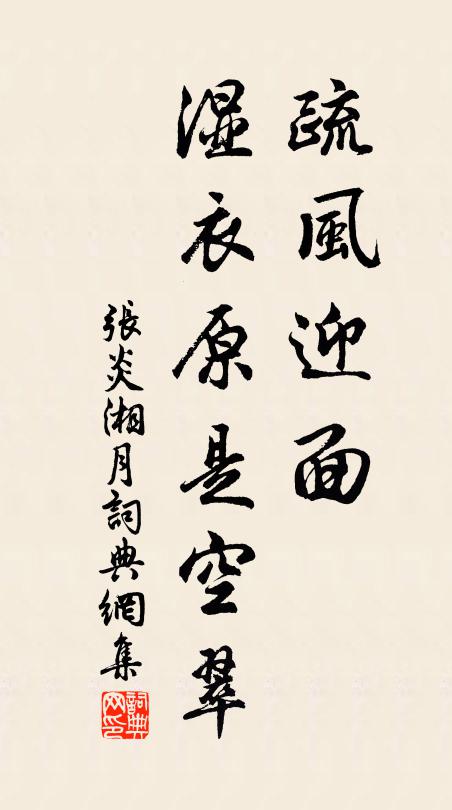 疏風迎面
湿衣原是空翠
張炎湘月詞典網集
詞典网印